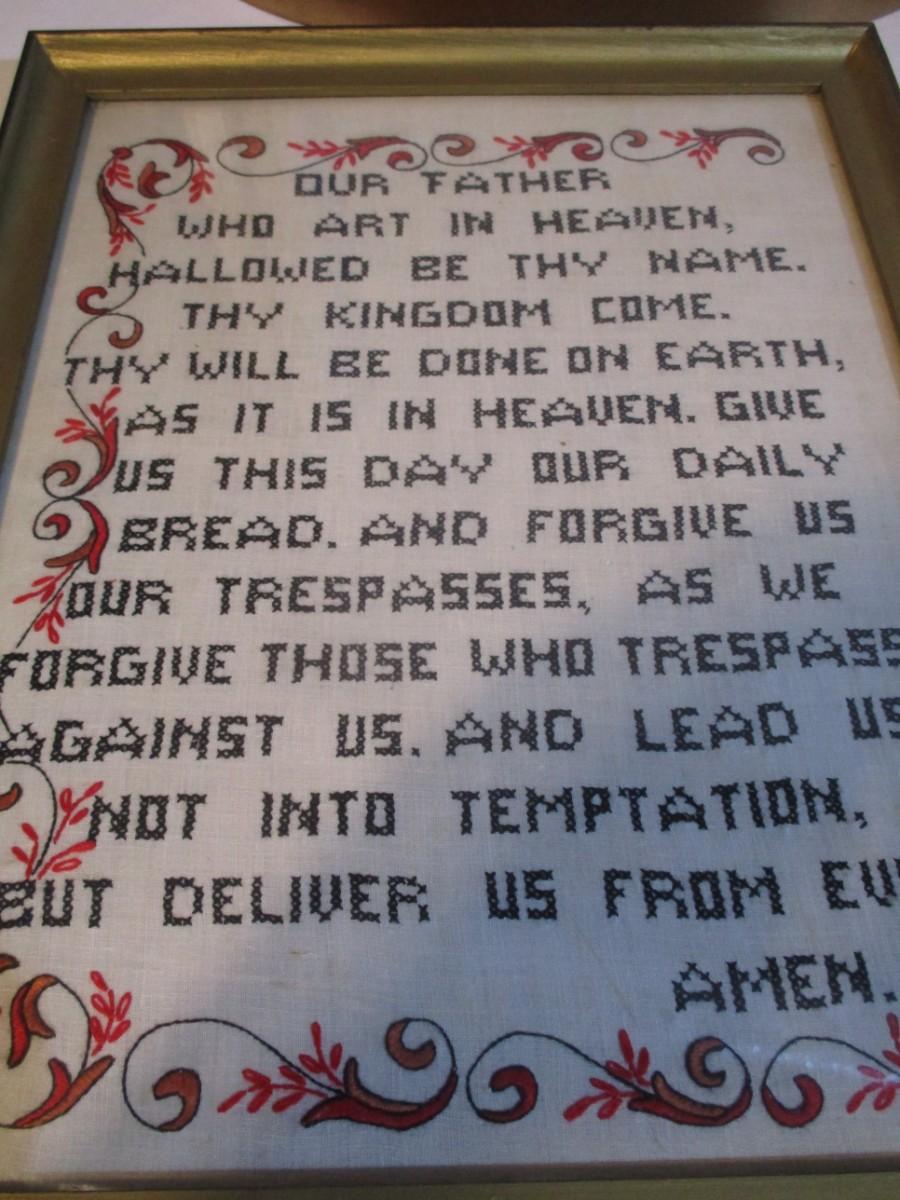 OUR FATHER
WHO ART IN HEAVEN,
HALLOWED BE THY NAME.
THY KINGDOM COME.
THY WILL BE DONE ON EARTH,
AS IT IS IN HEAVEN. GIVE
US THIS DAY OUR DAILY
BREAD. AND FORGIVE US
OUR TRESPASSES, AS WE
FORGIVE THOSE WHO TRESPASS
AGAINST US. AND LEAD US
NOT INTO TEMPTATION,
BUT DELIVER US FROM
AMEN.